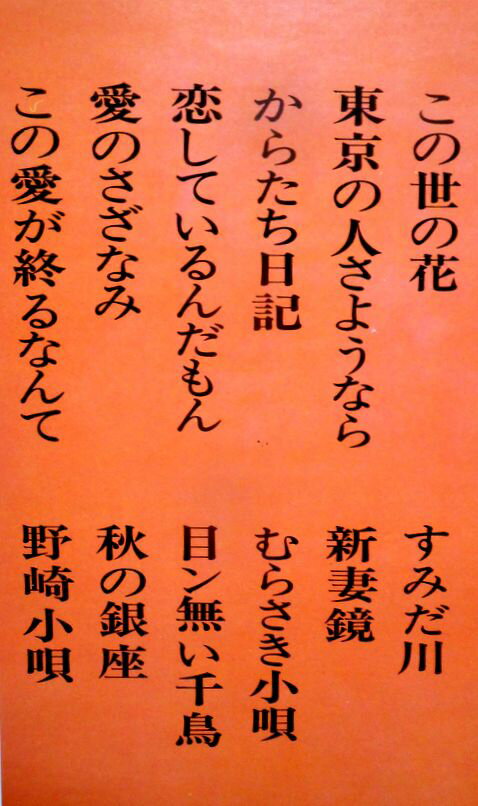 この世の花
東京の人さようなら
からたち日記
恋しているんだもん
愛のさざなみ
この愛が終るなんて
すみだ川
新妻鏡
むらさき小唄
目ン無い千鳥
秋の銀座
野崎小唄